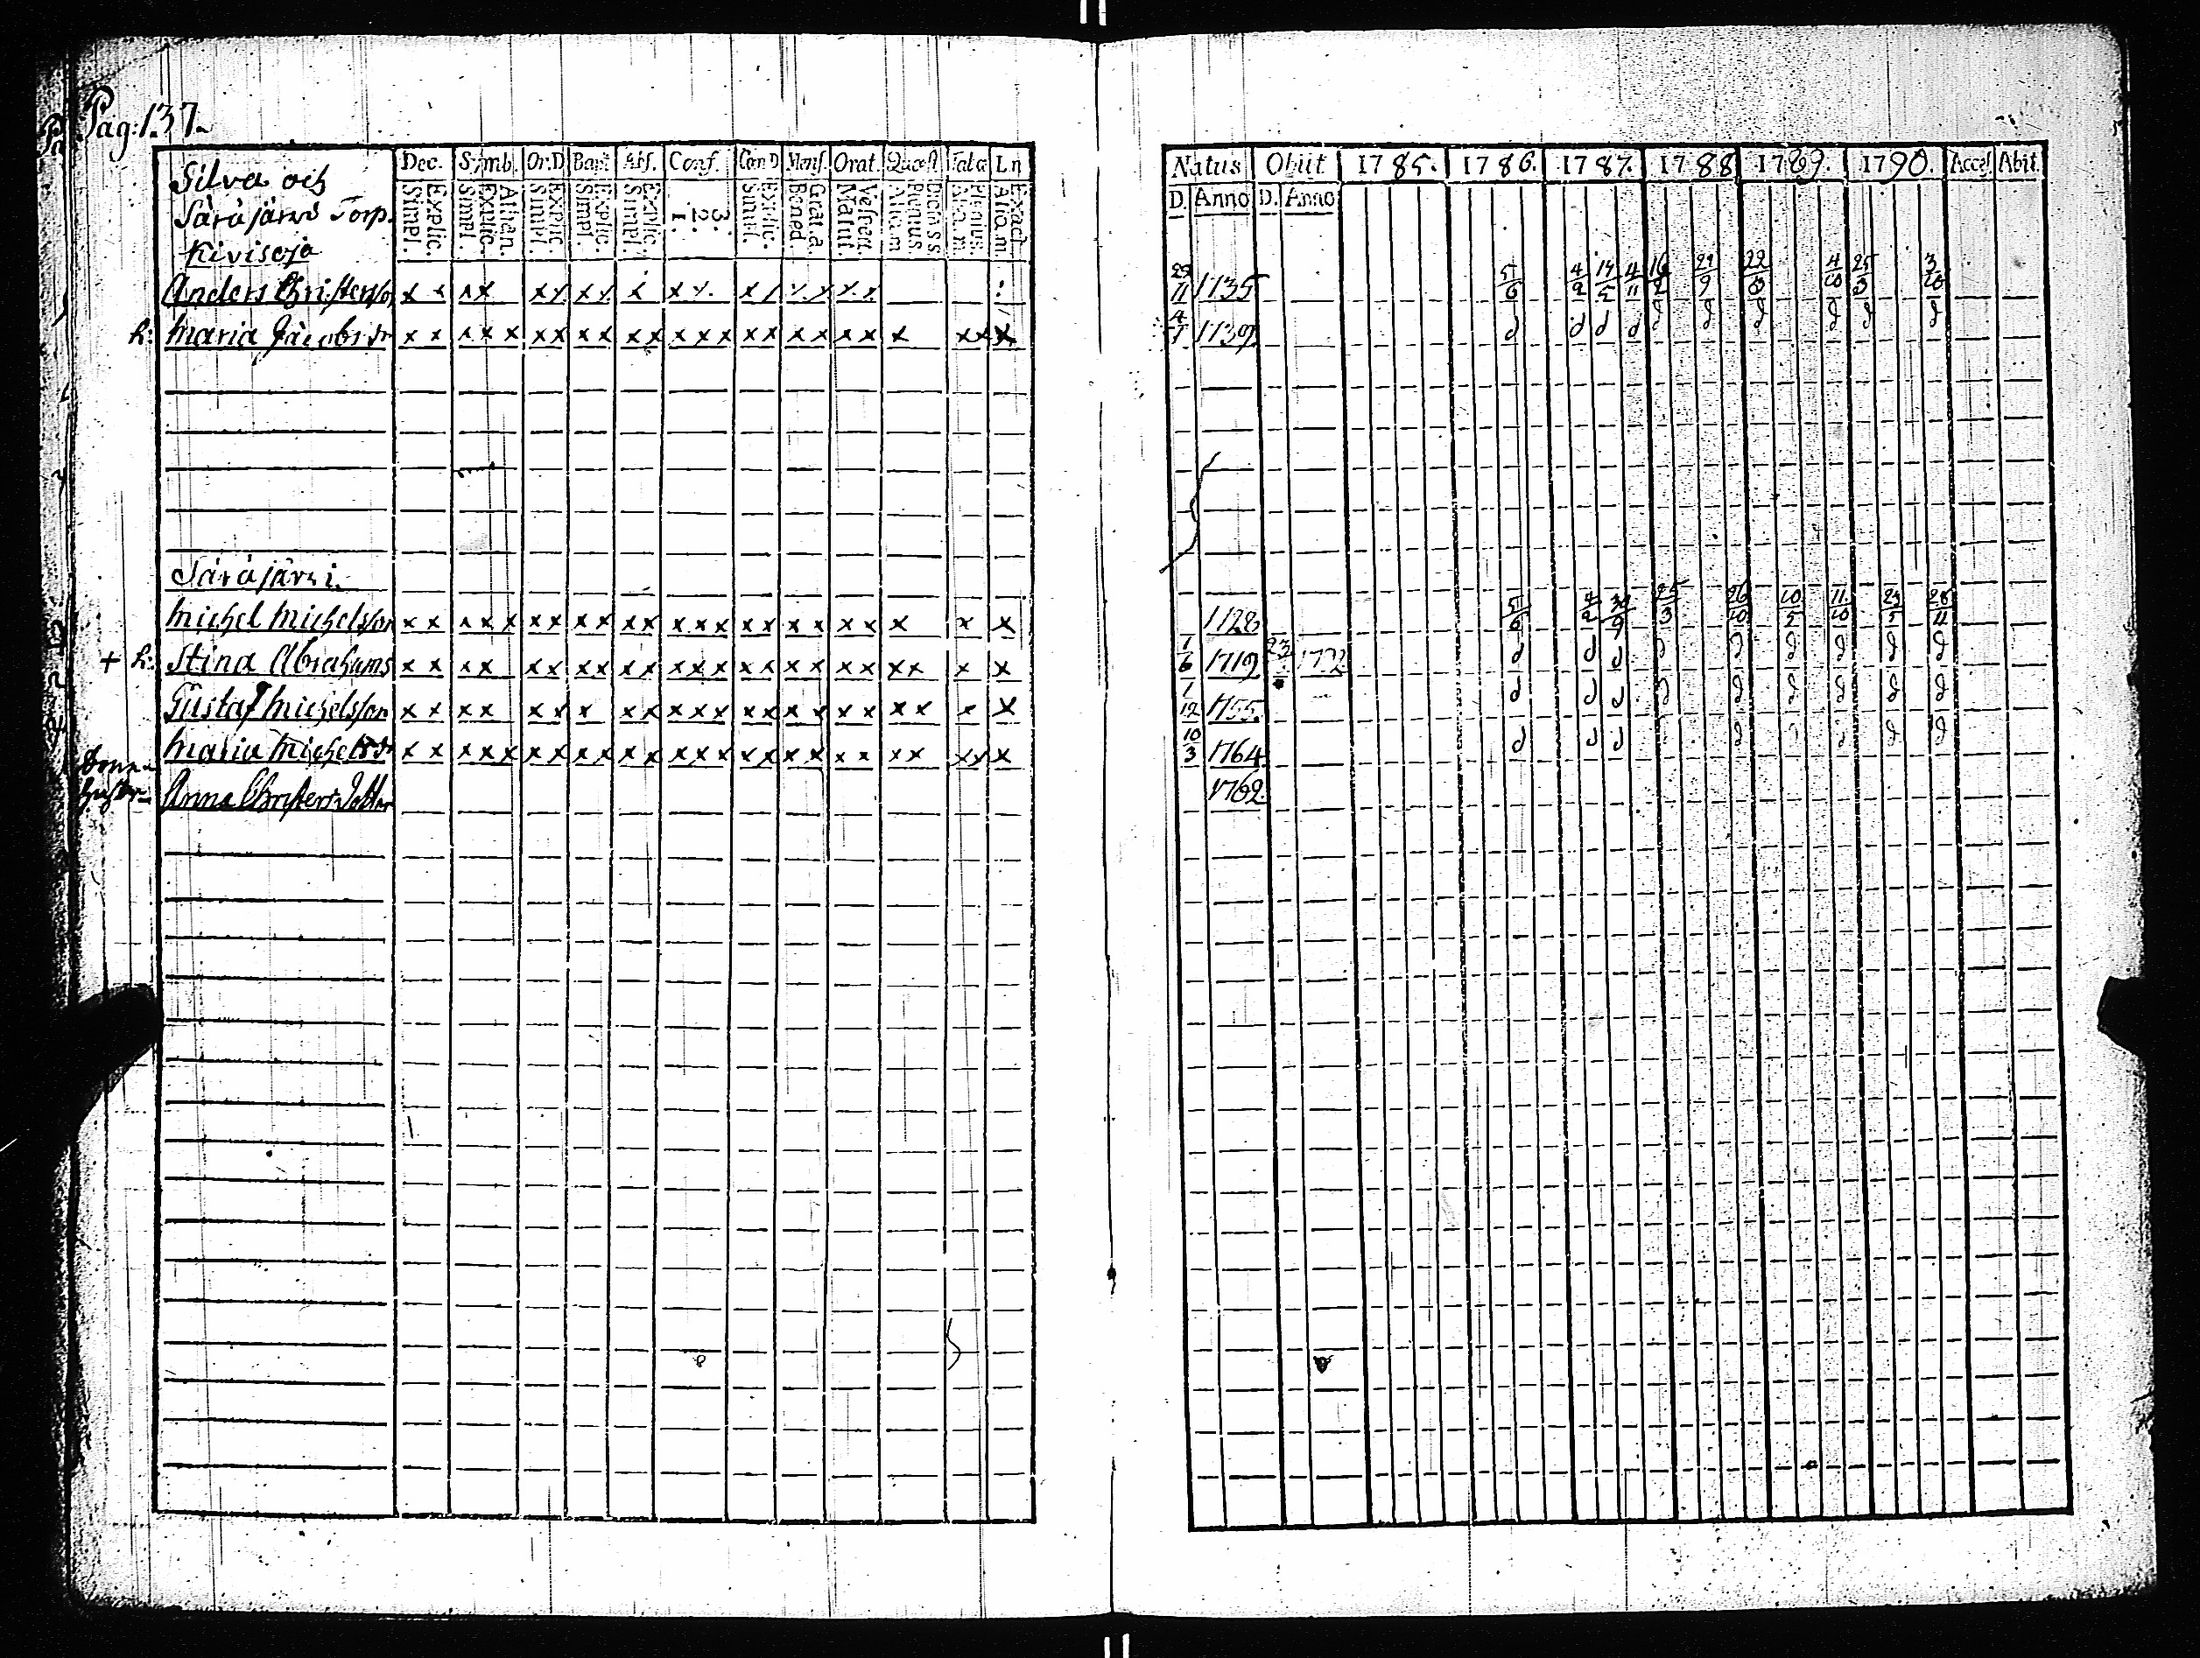 Pag: 137.
Silva och
Säräjärvi Torp.
Kivisoja
Dec. Symb. Or.D Bapt. Abs. Conf. Cœn D Mens. Orat. Quæst Tabæ Ln
Explic. Simpl. Athan. Explic. Simpl. Explic. Simpl. Explic. Simpl. Explic. Simpl. 3. 2. 1. Explic. Simpl. Grat. a. Bened. Vespert. Matut. Plenius Aliq. m. Plenius Aliq. m. Exact. Aliq. m.
Natus Obiit 1785. 1786. 1787. 1788 1789. 1790. Acces Abit
D. Anno D. Anno
Anders Christersso x x x x x x x x x x x x x x x x x 29/11 1735 5/6 4/2 14/5 4/11 16/2 21/9 22/3 4/10 25/3 3/10
h: Maria Jacobs dr x x x x x x x x x x x x x x x x x x x x x x x x 4/7 1739 d d d d d d d d d d
Säräjärvi.
Michel Michelsson x x x x x x x x x x x x x x x x x x x x x x x 1728 5/6 4/2 30/9 25/3 26/10 10/5 11/10 23/5 28/11
+ h: Stina Abrahams x x x x x x x x x x x x x x x x x x x x x x x 1/6 1719 23 1772 d d d d d d d d d
Gustaf Michelsson x x x x x x x x x x x x x x x x x x x x x x 1/12 1755. d d d d d d d d d
Maria Michels dr x x x x x x x x x x x x x x x x x x x x x x x x x 10/3 1764. d d d d d d d
hustr. Anna Christersdotter 1762.